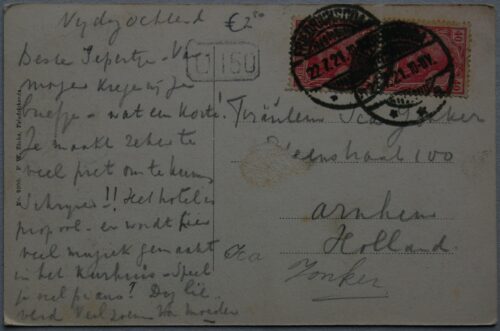 Vrydagochtend
€2,50
U 150
Beste Sepertje - Van
morgen kregen wij je
briefje - wat een korte!
Je maakt zeker te
veel pret om te kunnen
schryven!! Het hotel is
propvol - er wordt hier
veel muziek gemaakt
in het Kurhaus - Speel
je veel piano? Dag lie-
verd Veel zoenen Van Moeder
FRIEDRICHRODA
22.7.21.
40
Fräulein
Steenstraat 100
Arnhem
Holland
Jonker